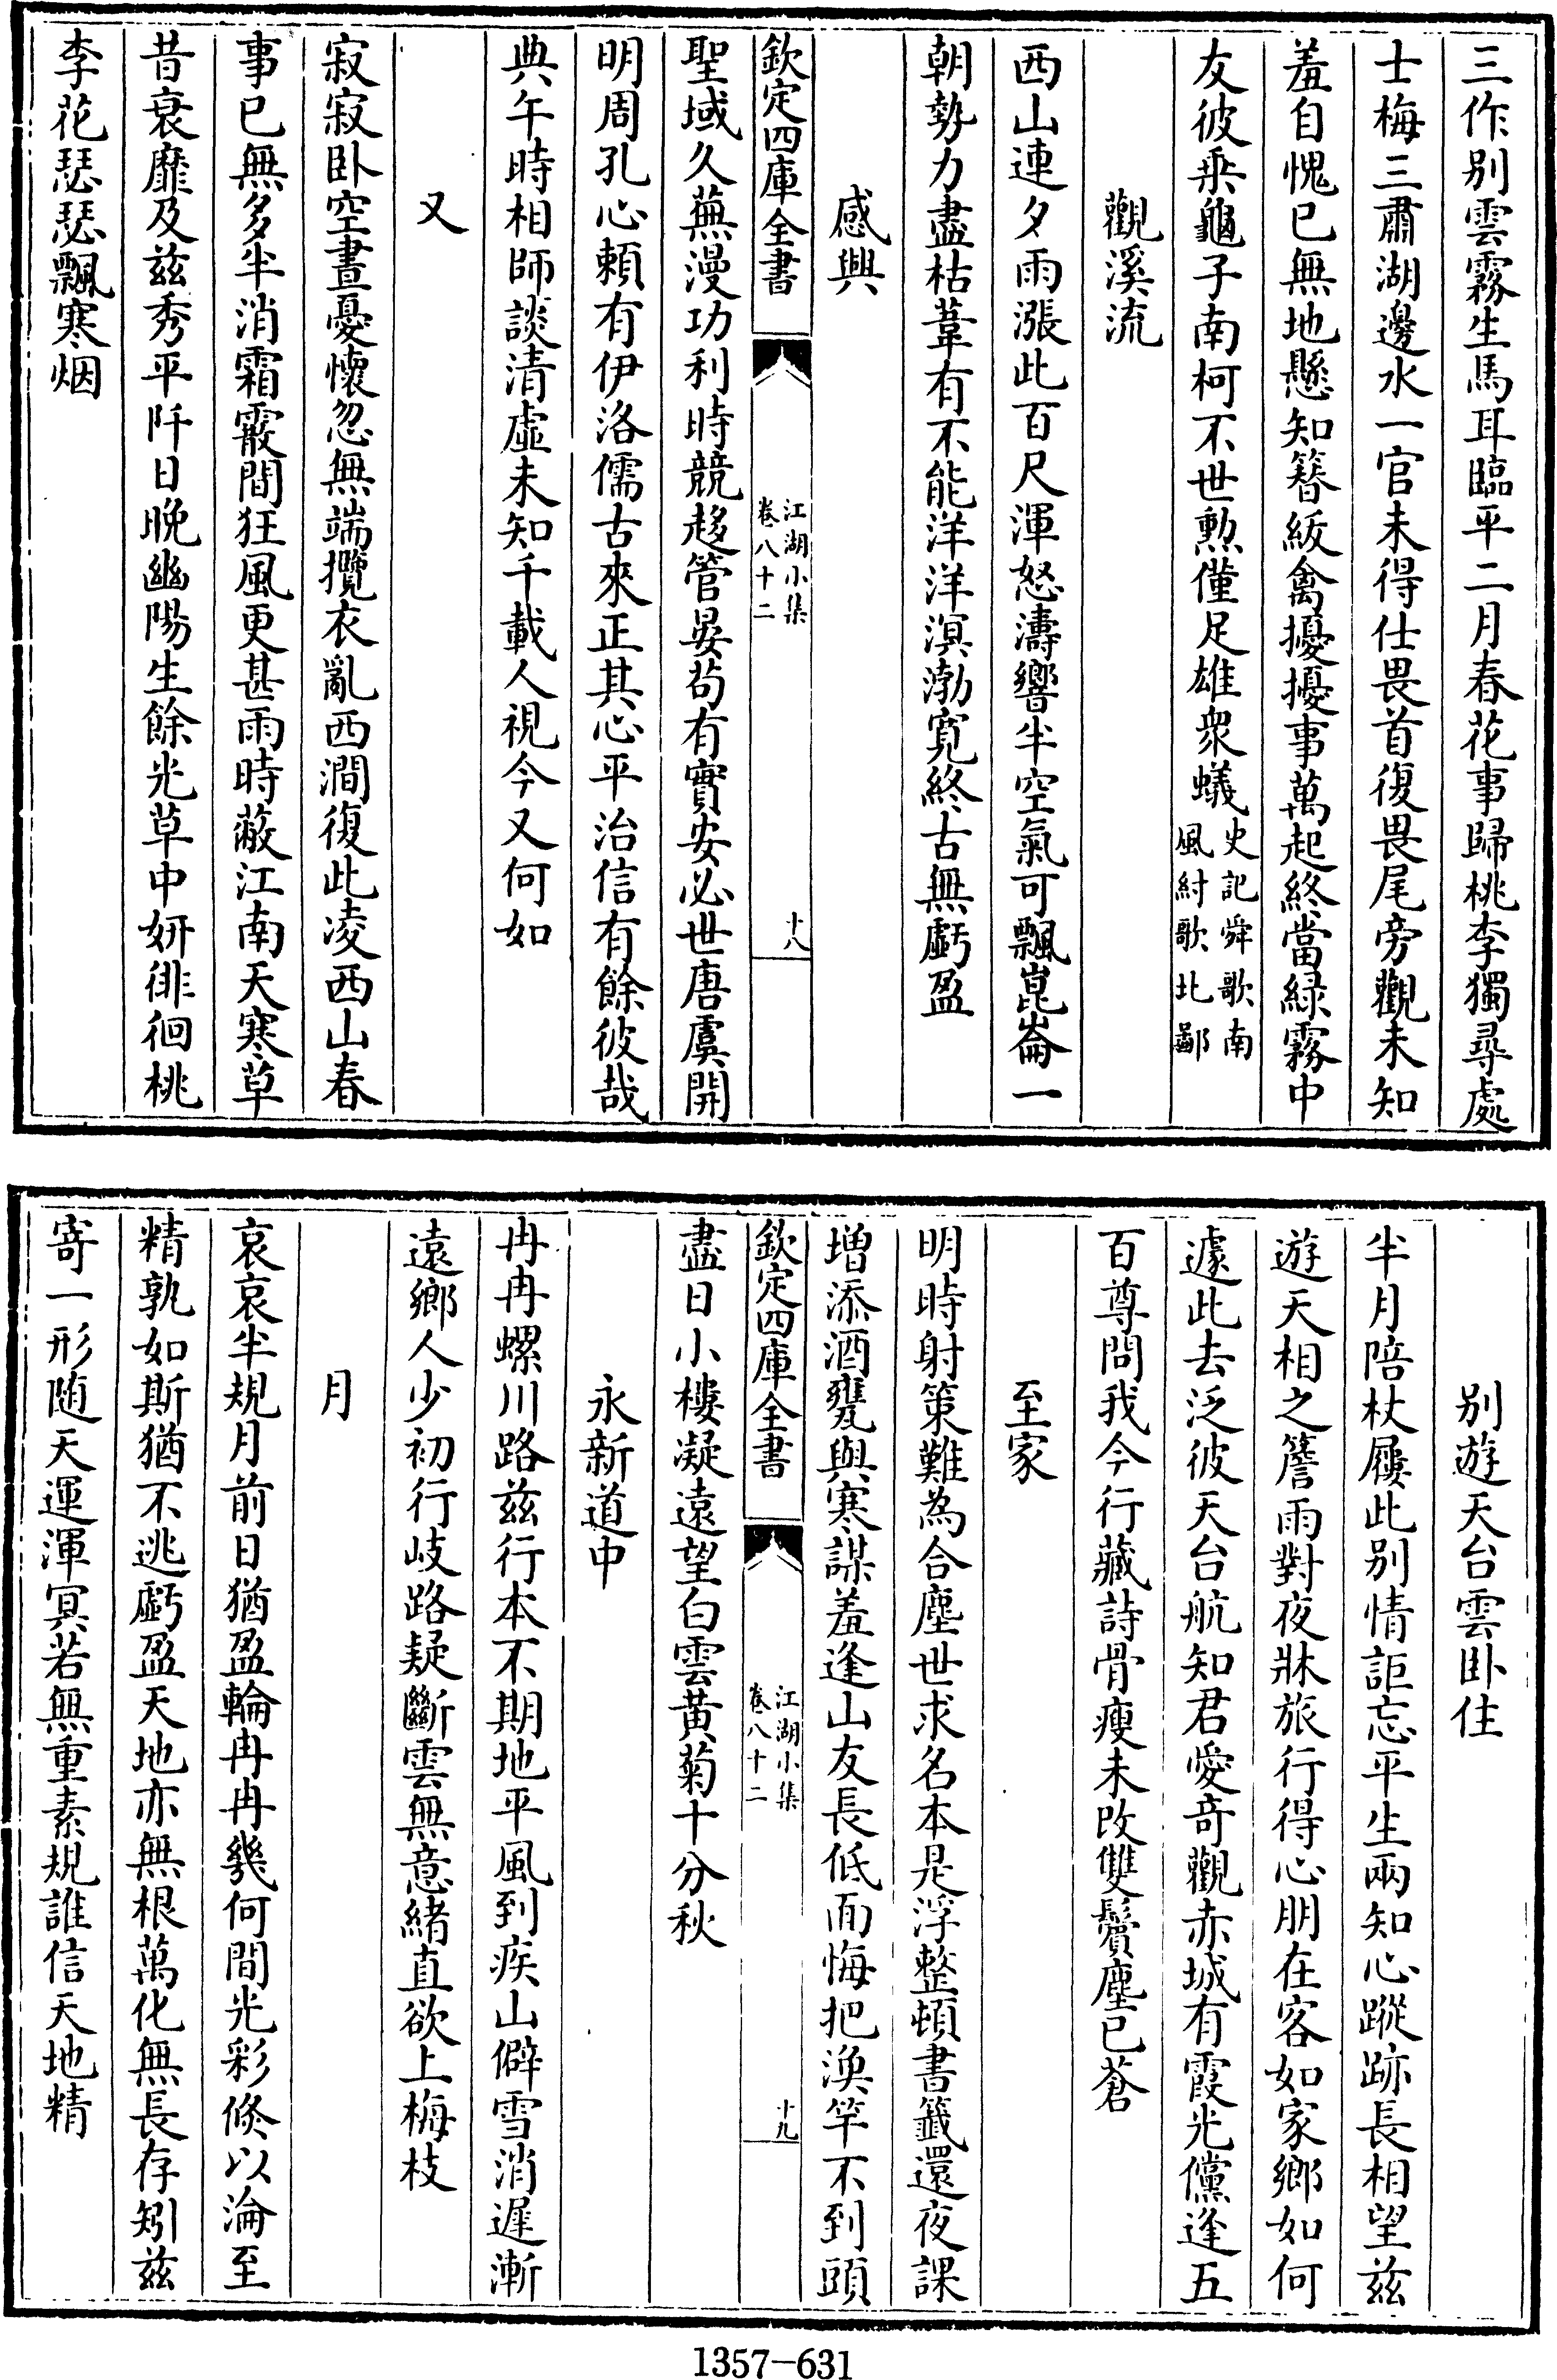 三作别雲霧生馬耳臨平二月春花事歸桃李獨尋處
士梅三肅湖邊水一官未得仕畏首復畏尾旁觀未知
羞自愧已無地懸知簪紱禽擾擾事萬起終當緑霧中
友彼乗龜子南柯不世勲僅足雄衆蟻史記舜歌南風紂歌北鄙
觀溪流
西山連夕雨漲此百尺渾怒濤響半空氣可飄崑崙一
朝勢力盡枯葦有不能洋洋溟渤寛終古無虧盈
感興
欽定四庫全書
江湖小集
卷八十二
十八
聖域久蕪漫功利時競趍管晏茍有實安必世唐虞開
明周孔心頼有伊洛儒古來正其心平治信有餘彼哉
典午時相師談清虛未知千載人視今又何如
又
寂寂卧空晝憂懷忽無端攬衣亂西澗復此凌西山春
事已無多半消霜霰間狂風更甚雨時蔽江南天寒草
昔衰靡及兹秀平阡日晚幽陽生餘光草中妍徘徊桃
李花瑟瑟飄寒烟
别遊天台雲卧住
半月陪杖屨此别情詎忘平生兩知心蹤跡長相望兹
遊天相之簷雨對夜牀旅行得心朋在客如家鄉如何
遽此去泛彼天台航知君愛竒觀赤城有霞光儻逢五
百尊問我今行藏詩骨瘦未改雙鬢塵已蒼
至家
明時射策難為合塵世求名本是浮整頓書籤還夜課
增添酒甕與寒謀羞逢山友長低面悔把漁竿不到頭
欽定四庫全書
江湖小集
卷八十二
十九
盡日小樓凝遠望白雲黄菊十分秋
永新道中
冉冉螺川路兹行本不期地平風到疾山僻雪消遲漸
遠鄉人少初行岐路疑斷雲無意緒直欲上梅枝
月
哀哀半規月前日猶盈輪冉冉幾何間光彩倐以淪至
精孰如斯猶不逃虧盈天地亦無根萬化無長存矧兹
寄一形随天運渾冥若無重素規誰信天地精
1357-631